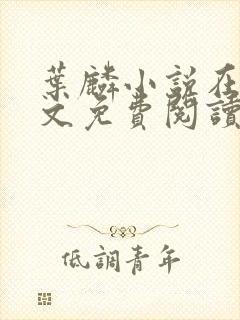 葉麟小說在
文免費閱讀
低調青年